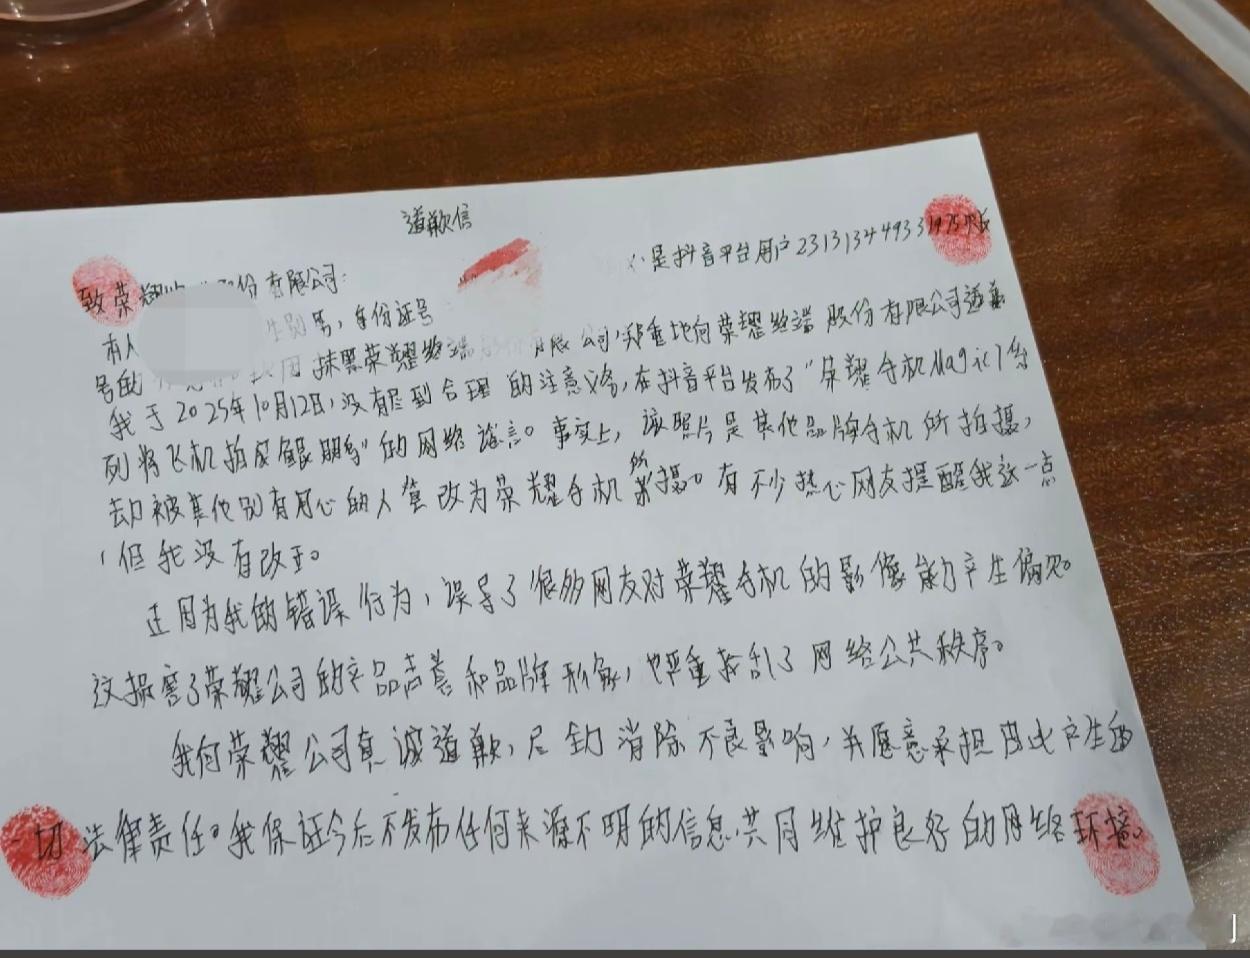 道歉信
致荣耀 股份有限公司:
本人 性别男,身份证号 是抖音平台用户231313449331975
号的 抹黑荣耀终端 有限公司,郑重地向荣耀终端股份有限公司道歉
我于2025年10月12日,没有尽到合理的注意义务,在抖音平台发布了“荣耀手机Magic7系
列将飞机拍成鲲鹏”的网络谣言。事实上,该照片是其他品牌手机所拍摄,
却被其他别有用心的人篡改为荣耀手机所摄。有不少热心网友提醒我这一点
,但我没有改正。
正因为我的错误行为,误导了很多网友对荣耀手机的影像能力产生偏见。
这损害了荣耀公司的产品声誉和品牌形象,也严重扰乱了网络公共秩序。
我向荣耀公司真诚道歉,尽力消除不良影响,并愿意承担因此产生的
一切法律责任。我保证今后不发布任何来源不明的信息,共同维护良好的网络环境。